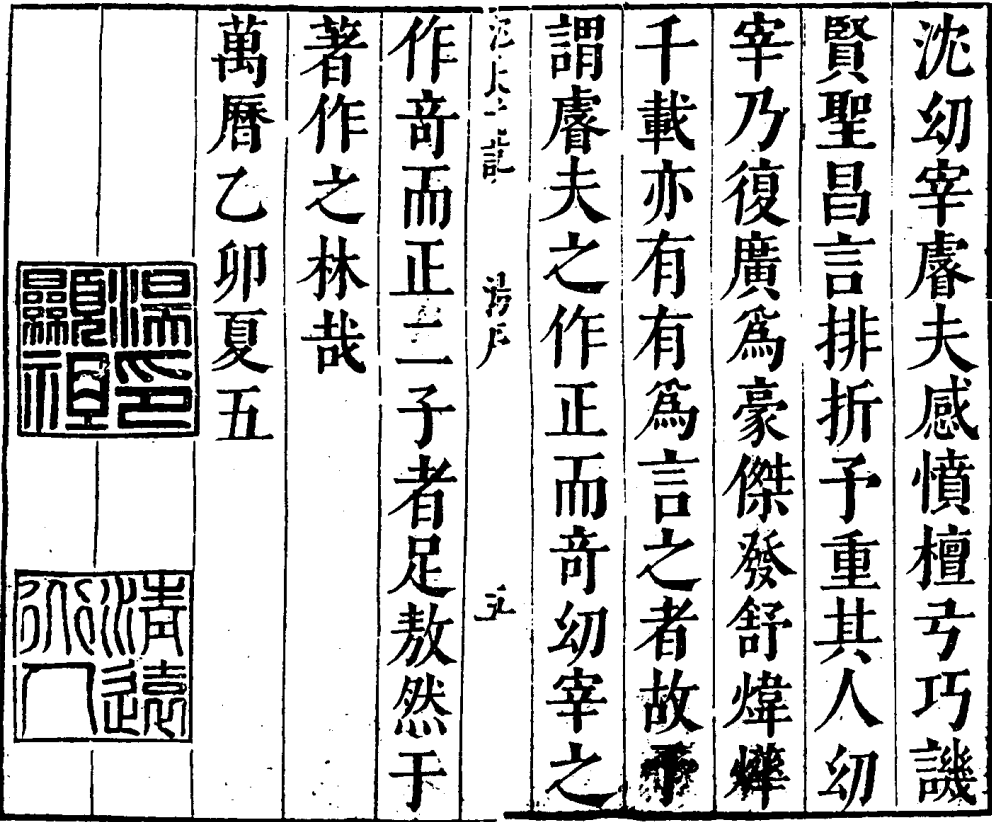 沈㓜宰睿夫感憤檀弓巧譏
賢聖昌言排折予重其人㓜
宰乃復廣爲豪傑發舒煒燁
千載亦有有爲言之者故予
謂睿夫之作正而竒㓜宰之
湯序
五
作竒而正二子者足敖然于
著作之林哉
萬曆乙卯夏五
湯顯祖印
清遠道人